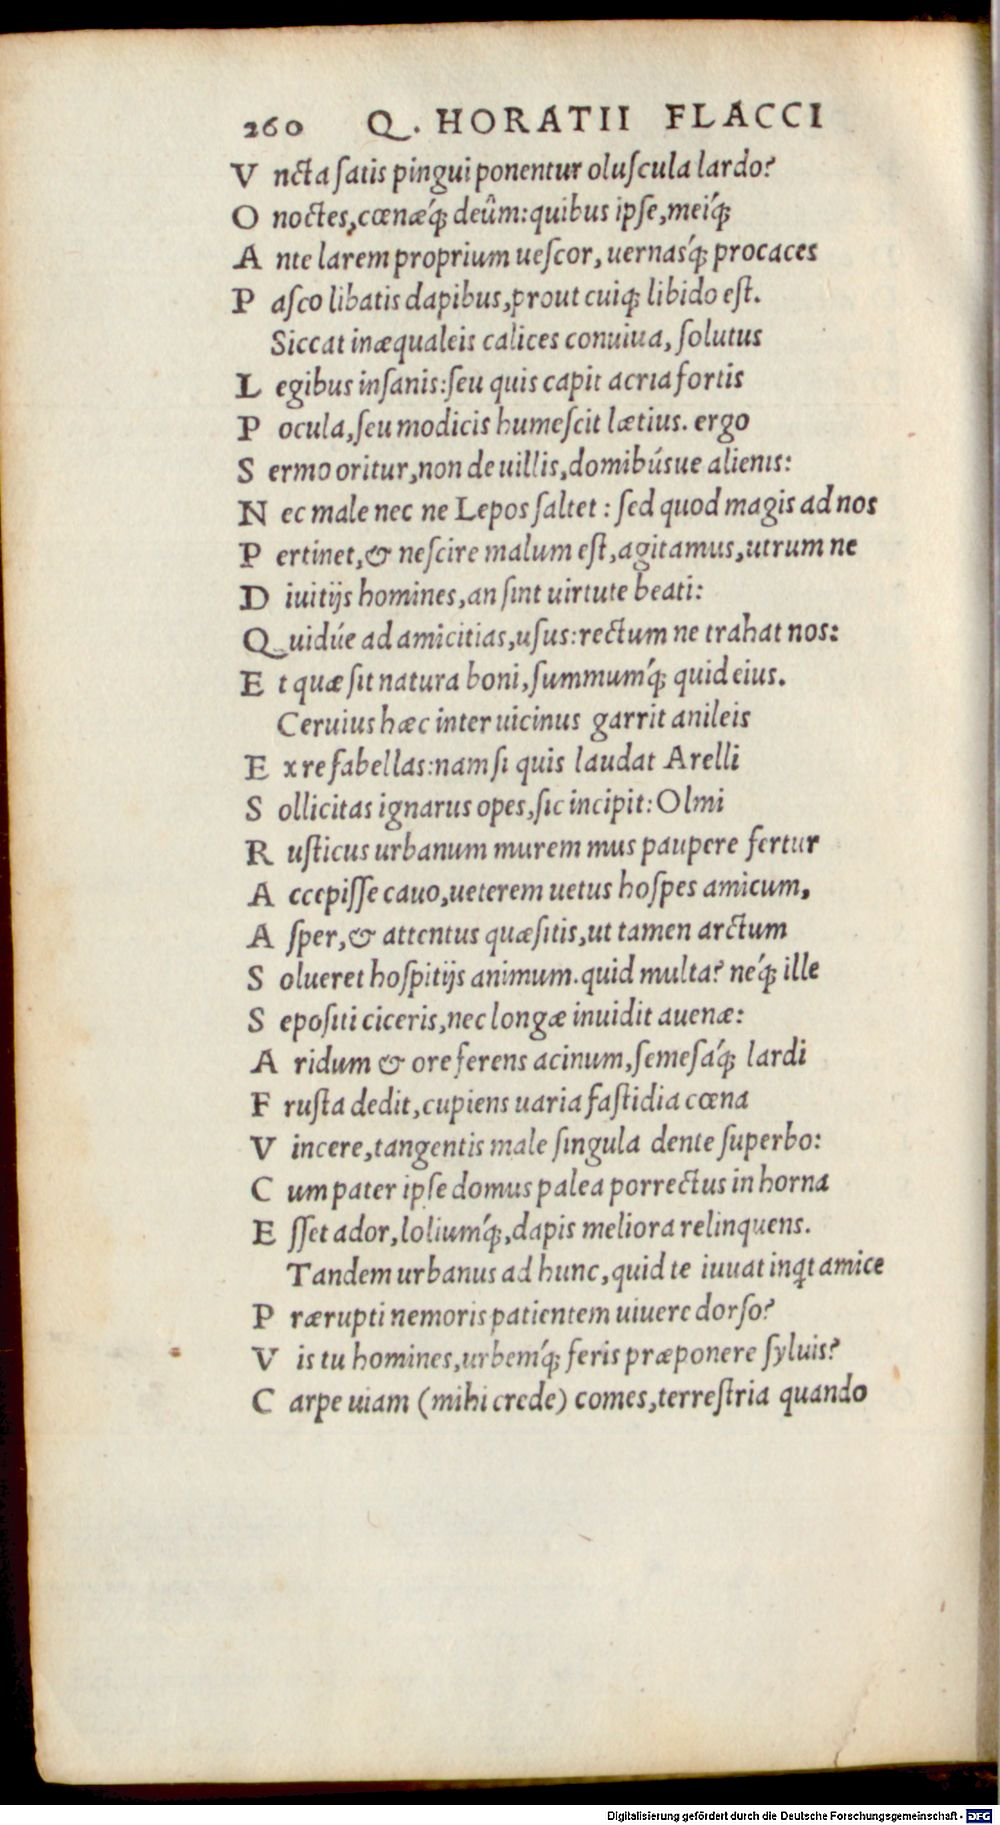 260 Q. HORATII FLACCI
V ncta ſatis pingui ponentur oluſcula lardo?
O noctes, cœnæq́; deûm: quibus ipſe, meiq́;
A nte larem proprium ueſcor, uernasq́; procaces
P aſco libatis dapibus, prout cuiq; libido eſt.
Siccat inæqualeis calices conuiua, ſolutus
L egibus inſanis: ſeu quis capit acria fortis
P ocula, ſeu modicis humeſcit lætius. ergo
S ermo oritur, non de uillis, domibúsue alienis:
N ec male nec ne Lepos ſaltet: ſed quod magis ad nos
P ertinet, & neſcire malum eſt, agitamus, utrum ne
D iuitijs homines, an ſint uirtute beati:
Q uidúe ad amicitias, uſus: rectum ne trahat nos:
E t quæ ſit natura boni, ſummumq́; quid eius.
Ceruius hæc inter uicinus garrit anileis
E x re fabellas: nam ſi quis laudat Arelli
S ollicitas ignarus opes, ſic incipit: Olmi
R uſticus urbanum murem mus paupere fertur
A ccepiſſe cauo, ueterem uetus hoſpes amicum,
A ſper, & attentus quæſitis, ut tamen arctum
S olueret hoſpitijs animum. quid multa? neq́; ille
S epoſiti ciceris, nec longæ inuidit auenæ:
A ridum & ore ferens acinum, ſemeſaq́; lardi
F ruſta dedit, cupiens uaria faſtidia cœna
V incere, tangentis male ſingula dente ſuperbo:
C um pater ipſe domus palea porrectus in horna
E ſſet ador, loliumq́;, dapis meliora relinquens.
Tandem urbanus ad hunc, quid te iuuat inqt amice
P rærupti nemoris patientem uiuere dorſo?
V is tu homines, urbemq́; feris præponere ſyluis?
C arpe uiam (mihi crede) comes, terreſtria quando
Digitalisierung gefördert durch die Deutsche Forschungsgemeinschaft - DFG